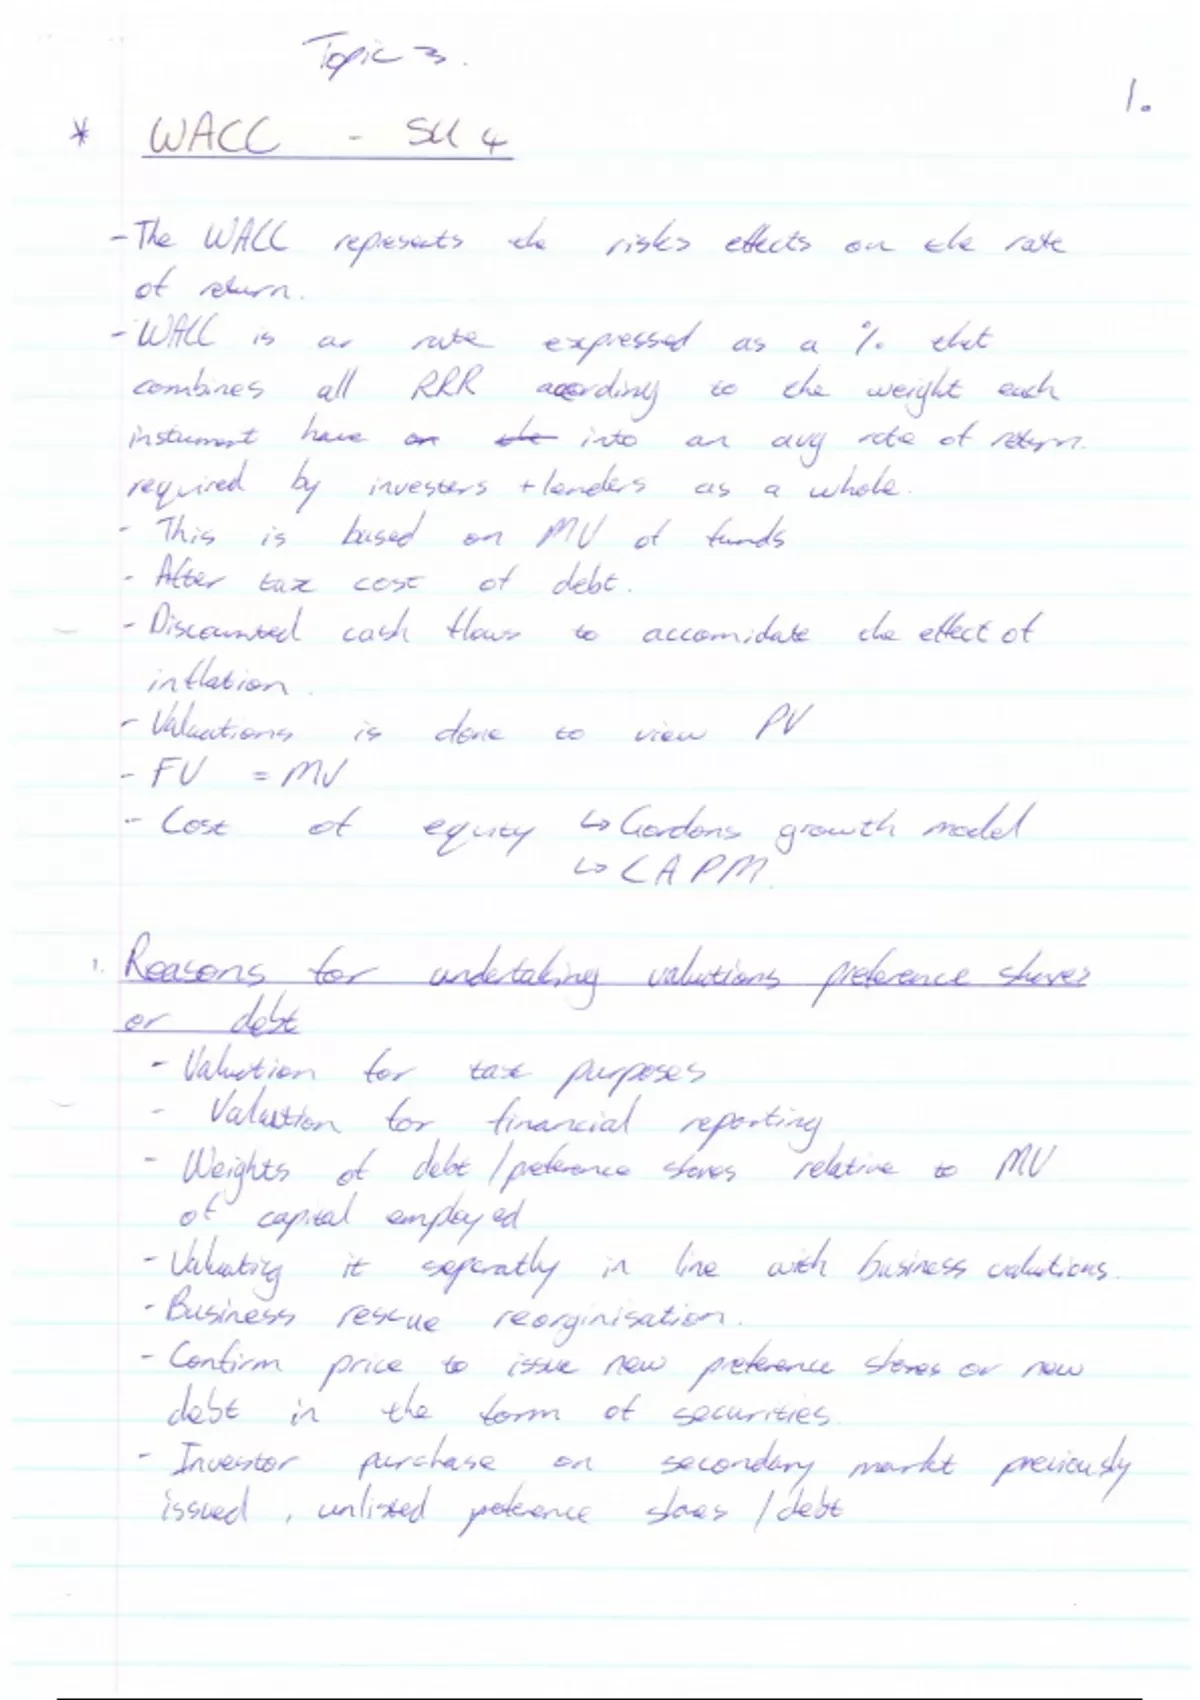 Topic 3.
1.
* WACC - SU 4
- The WACC represents the risks effects on the rate
of return.
- WACC is an rate expressed as a % that
combines all RRR according to the weight each
instument have on the into an avg rate of return.
required by investers + lenders as a whole.
- This is based on MV of funds
- After tax cost of debt.
- Discounted cash flows to accomidate the effect of
inflation.
- Valuations is done to view PV
- FV = MV
- Cost of equity ↳ Gordons growth model
↳ CAPM.
1. Reasons for undertaking valuations preference shares
or debt
- Valuation for tax purposes
- Valuation for financial reporting
- Weights of debt / preference shares relative to MV
of capital employed
- Valuating it seperatly in line with business valuations.
- Business rescue reorginisation.
- Confirm price to issue new preference shares or new
debt in the form of securities.
- Investor purchase on secondary markt previously
issued, unlisted preference shares / debt